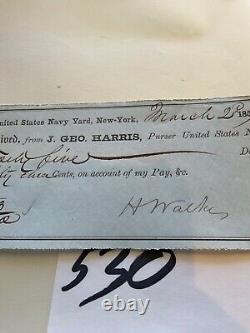 nited States Navy Yard, New-York, March 2 185
ived, from J. GEO. HARRIS, Purser United States N
five Do
Cents, on account of my Pay, &c.
H Walke
530